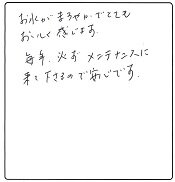 お水がまろやかでとても
おいしく感じます。
毎年、必ずメンテナンスに
来て下さるので安心です。